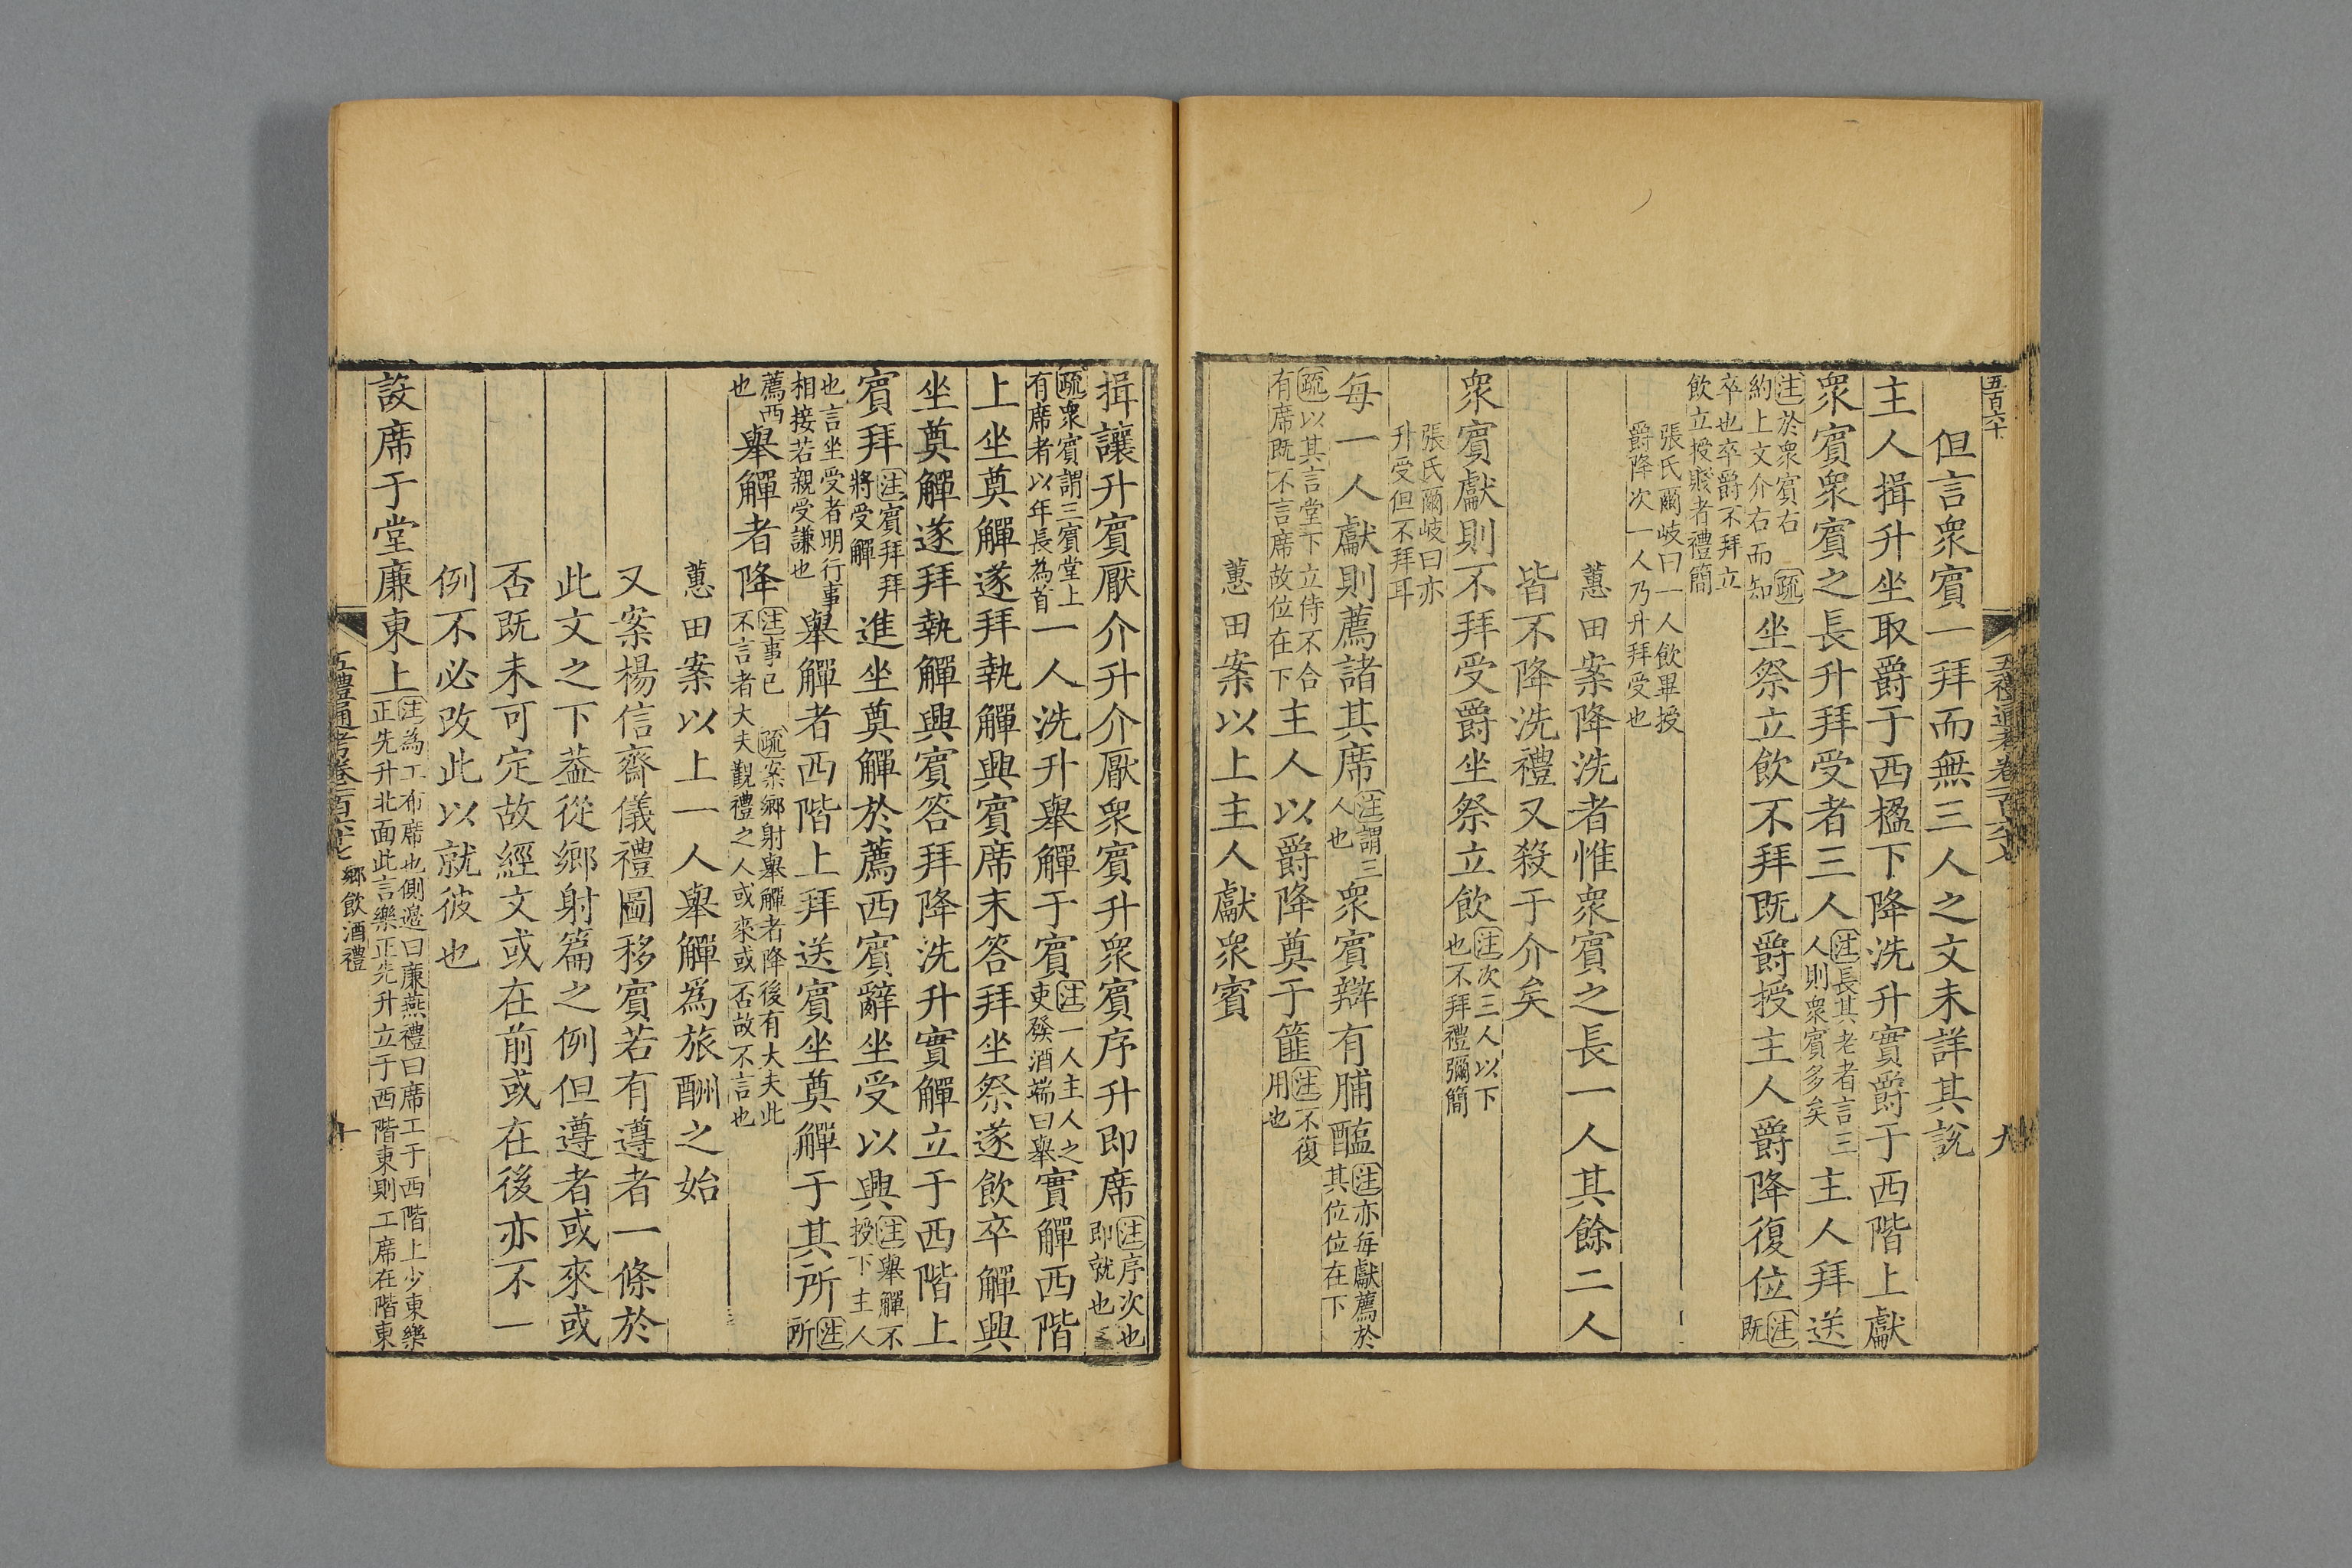 五百六十
五禮通考卷一百六十七
九
但言衆賓一拜而無三人之文未詳其說
主人揖升坐取爵于西楹下降洗升實爵于西階上獻
衆賓衆賓之長升拜受者三人注長其老者言三人則衆賓多矣主人拜送
注於衆賓右疏約上文介右而知坐祭立飲不拜既爵授主人爵降復位注既
卒也卒爵不拜立飲立授賤者禮簡
張氏爾岐曰一人飲畢授爵降次一人乃升拜受也
蕙田案降洗者惟衆賓之長一人其餘二人
皆不降洗禮又殺于介矣
衆賓獻則不拜受爵坐祭立飲注次三人以下也不拜禮彌簡
張氏爾岐曰亦升受但不拜耳
每一人獻則薦諸其席注謂三人也衆賓辯有脯醢注亦每獻薦於其位位在下
疏以其言堂下立侍不合有席既不言席故位在下主人以爵降奠于篚注不復用也
蕙田案以上主人獻衆賓
揖讓升賓厭介升介厭衆賓升衆賓序升即席注序次也即就也
疏衆賓謂三賓堂上有席者以年長為首一人洗升舉觶于賓注一人主人之吏發酒端曰舉實觶西階
上坐奠觶遂拜執觶興賓席末答拜坐祭遂飲卒觶興
坐奠觶遂拜執觶興賓答拜降洗升實觶立于西階上
賓拜注賓拜拜將受觶進坐奠觶於薦西賓辭坐受以興注舉觶不授下主人
也言坐受者明行事相接若親受謙也舉觶者西階上拜送賓坐奠觶于其所注所
薦西也舉觶者降注事已疏案鄉射舉觶者降後有大夫此不言者大夫觀禮之人或來或否故不言也
蕙田案以上一人舉觶爲旅酬之始
又案楊信齋儀禮圖移賓若有遵者一條於
此文之下葢從鄉射篇之例但遵者或來或
否既未可定故經文或在前或在後亦不一
例不必改此以就彼也
設席于堂廉東上注為工布席也側邊曰廉燕禮曰席工于西階上少東樂正先升北面此言樂正先升立于西階東則工席在階東
五禮通考卷一百六十七 鄉飲酒禮
十